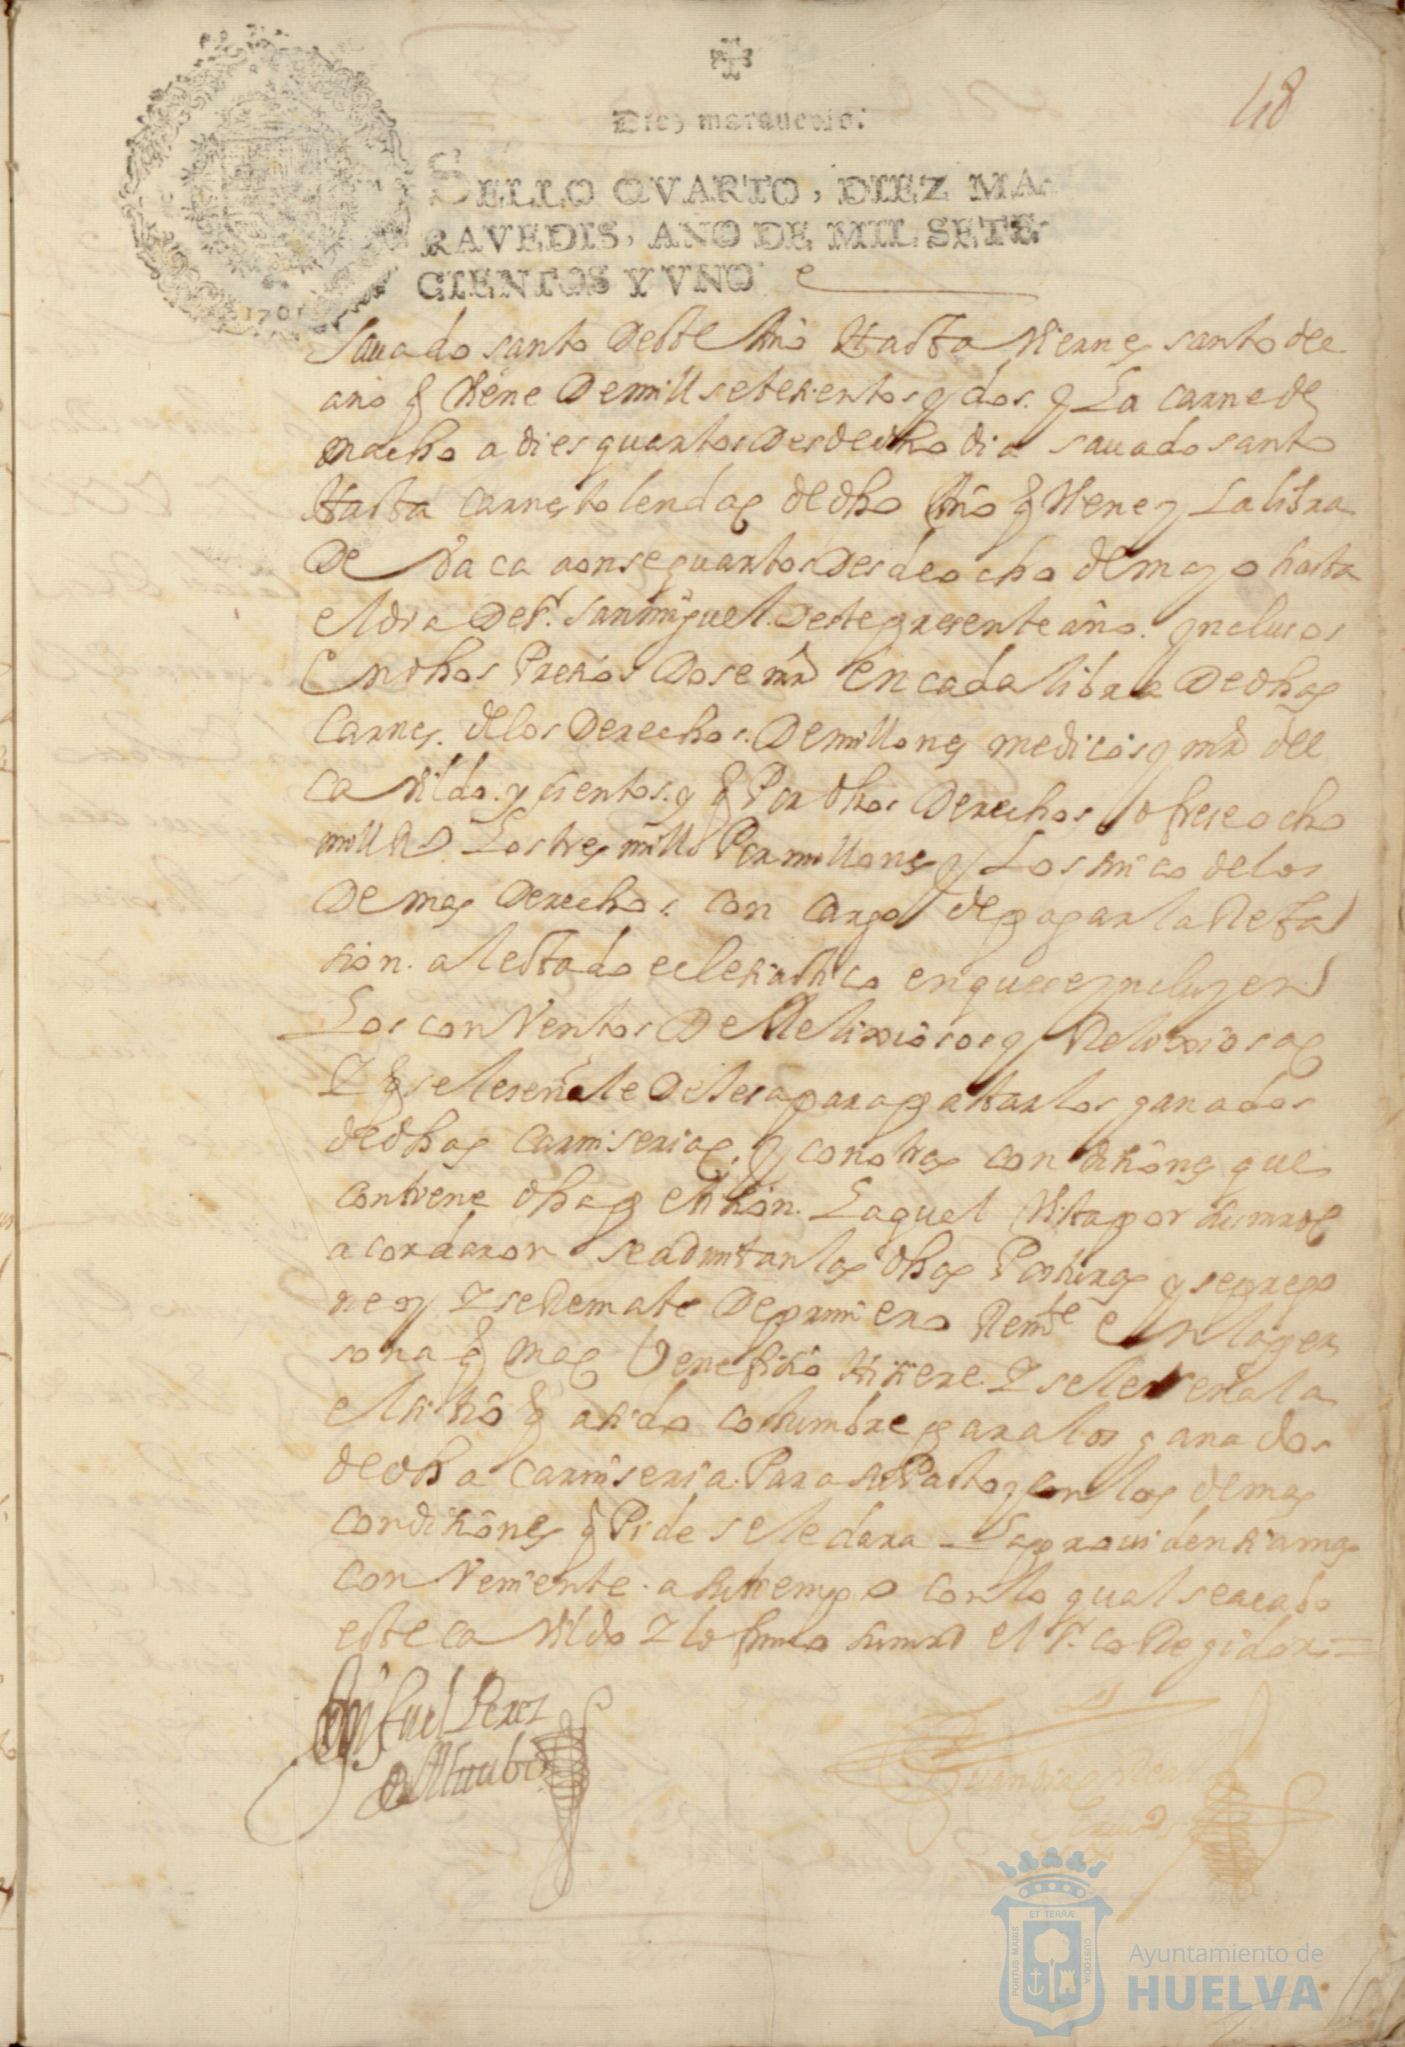 48
Diez maravedis.
SELLO QVARTO, DIEZ MA-
RAVEDIS, AÑO DE MIL SETE-
CIENTOS Y VNO
1701
Sauado santo Deste Año Hasta Viernes santo del
año q Viene De mill setesientos y dos. y La carne de
macho a dies quartos Desde dho dia sauado santo
Hasta carnestolendas de dho Año q Viene y La libra
De Vaca a onse quartos Desde ocho de mayo hasta
el dia De sr. san miguel. Deste presente año. ynclusos
En dhos Presios Dose mrs en cada libra De dhas
Carnes. de los Derechos. De millones medicos y mrs del
ca Vildo. y sientos. y q Por dhos Derechos ofrese ocho
mill Rs Los tres mill Por millones y Los sinco de los
Demas Derechos. con cargo de pagar la Refa
sion. al estado eclesiastico en que se yncluyen
Los conVentos De Relixiosos y Relixiosas
Y q se le señale Desa para pastar los ganados
de dhas carniserias. y con otras condisiones que
contiene dha petision. La qual Vista por sus mrds
acordaron se admitan las dhas Posturas y se prego
nen Y se Remate De primero Remte En la per
sona q mas Venefisio hisiere. Y se le señala
el sitio q a sido costumbre para los ganados
de dha carniseria. Para su Pasto y en las demas
condisiones q Pide se le dara La prouidensia mas
conVeniente. a su tiempo con lo qual se acabo
este caVildo Y lo firmo su mrd el sr. coRegidor =
Perez
ET TERRÆ
PORTUS MARIS
CUSTODIA
Ayuntamiento de
HUELVA